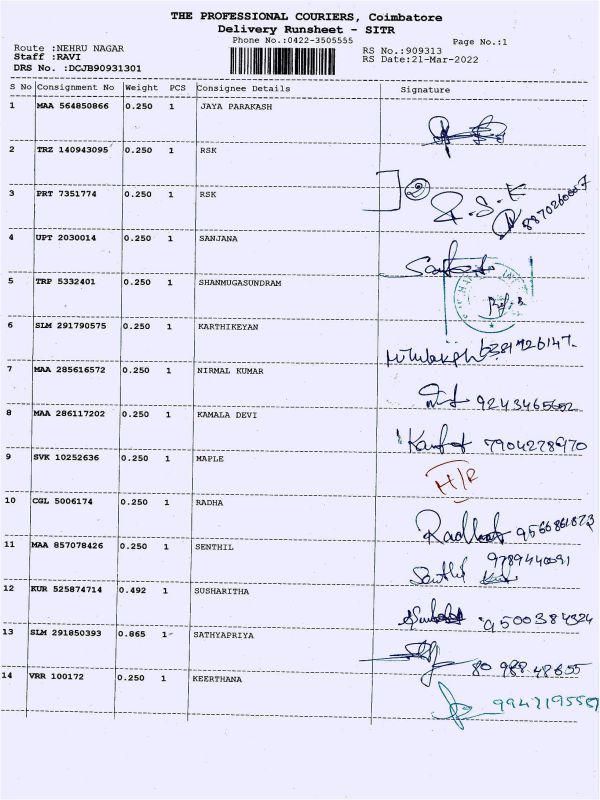 THE PROFESSIONAL COURIERS, Coimbatore
Delivery Runsheet - SITR
Phone No.:0422-3505555
Page No.:1
Route :NEHRU NAGAR
RS No.:909313
Staff :RAVI
RS Date:21-Mar-2022
DRS No. :DCJB90931301
S No Consignment No Weight PCS Consignee Details Signature
1 MAA 564850866 0.250 1 JAYA PARAKASH
2 TRZ 140943095 0.250 1 RSK
3 PRT 7351774 0.250 1 RSK
R.S.K 8870260007
4 UPT 2030014 0.250 1 SANJANA
5 TRP 5332401 0.250 1 SHANMUGASUNDRAM
6 SLM 291790575 0.250 1 KARTHIKEYAN
6381726147
7 MAA 285616572 0.250 1 NIRMAL KUMAR
9243465602
8 MAA 286117202 0.250 1 KAMALA DEVI
7904278970
9 SVK 10252636 0.250 1 MAPLE
H/R
10 CGL 5006174 0.250 1 RADHA
Radha 9566861873
11 MAA 857078426 0.250 1 SENTHIL
Senthil 9789440091
12 KUR 525874714 0.492 1 SUSHARITHA
9500384324
13 SLM 291850393 0.865 1 SATHYAPRIYA
80 988 48655
14 VRR 100172 0.250 1 KEERTHANA